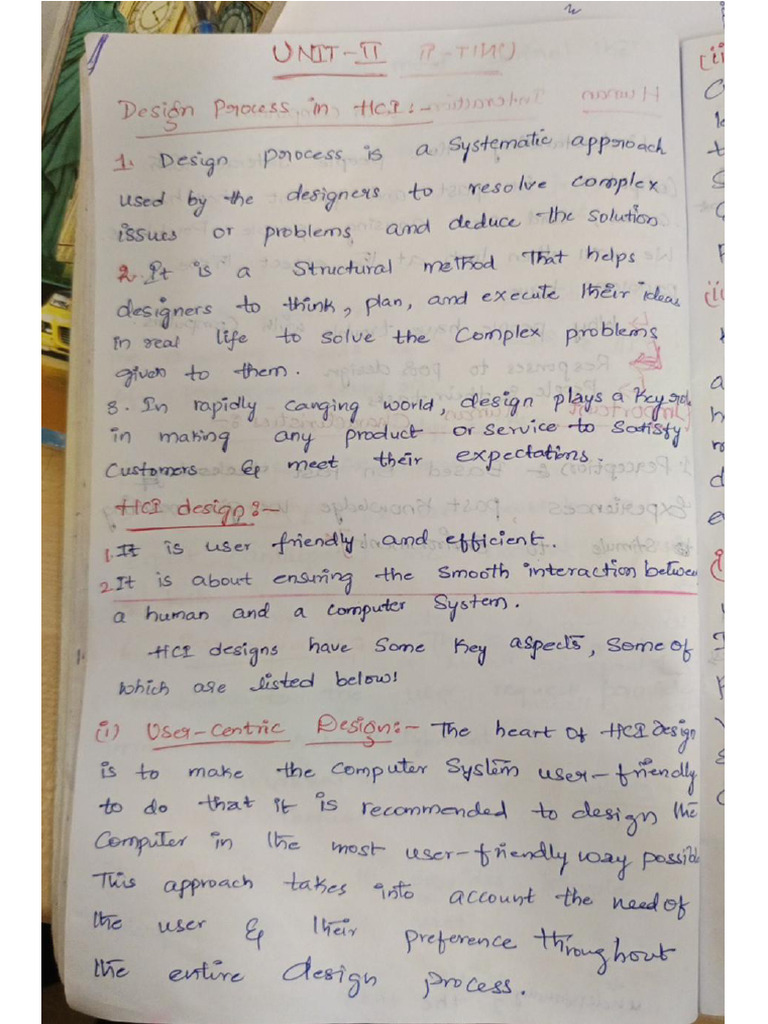 UNIT-II
Design Process in HCI:-
1. Design process is a systematic approach
used by the designers to resolve complex
issues or problems and deduce the solution
2. It is a structural method that helps
designers to think, plan, and execute their ideas
in real life to solve the complex problems
given to them.
3. In rapidly canging world, design plays a key role
in making any product or service to satisfy
customers & meet their expectations.
HCI design:-
1. It is user friendly and efficient.
2. It is about ensuring the smooth interaction between
a human and a computer system.
HCI designs have some key aspects, some of
which are listed below!
(i) User-Centric Design:- The heart of HCI design
is to make the computer system user-friendly
to do that it is recommended to design the
computer in the most user-friendly way possible
This approach takes into account the need of
the user & their preference throughout
the entire design process.